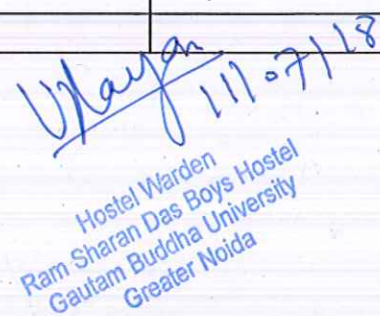 11.07/18
Hostel Warden
Ram Sharan Das Boys Hostel
Gautam Buddha University
Greater Noida